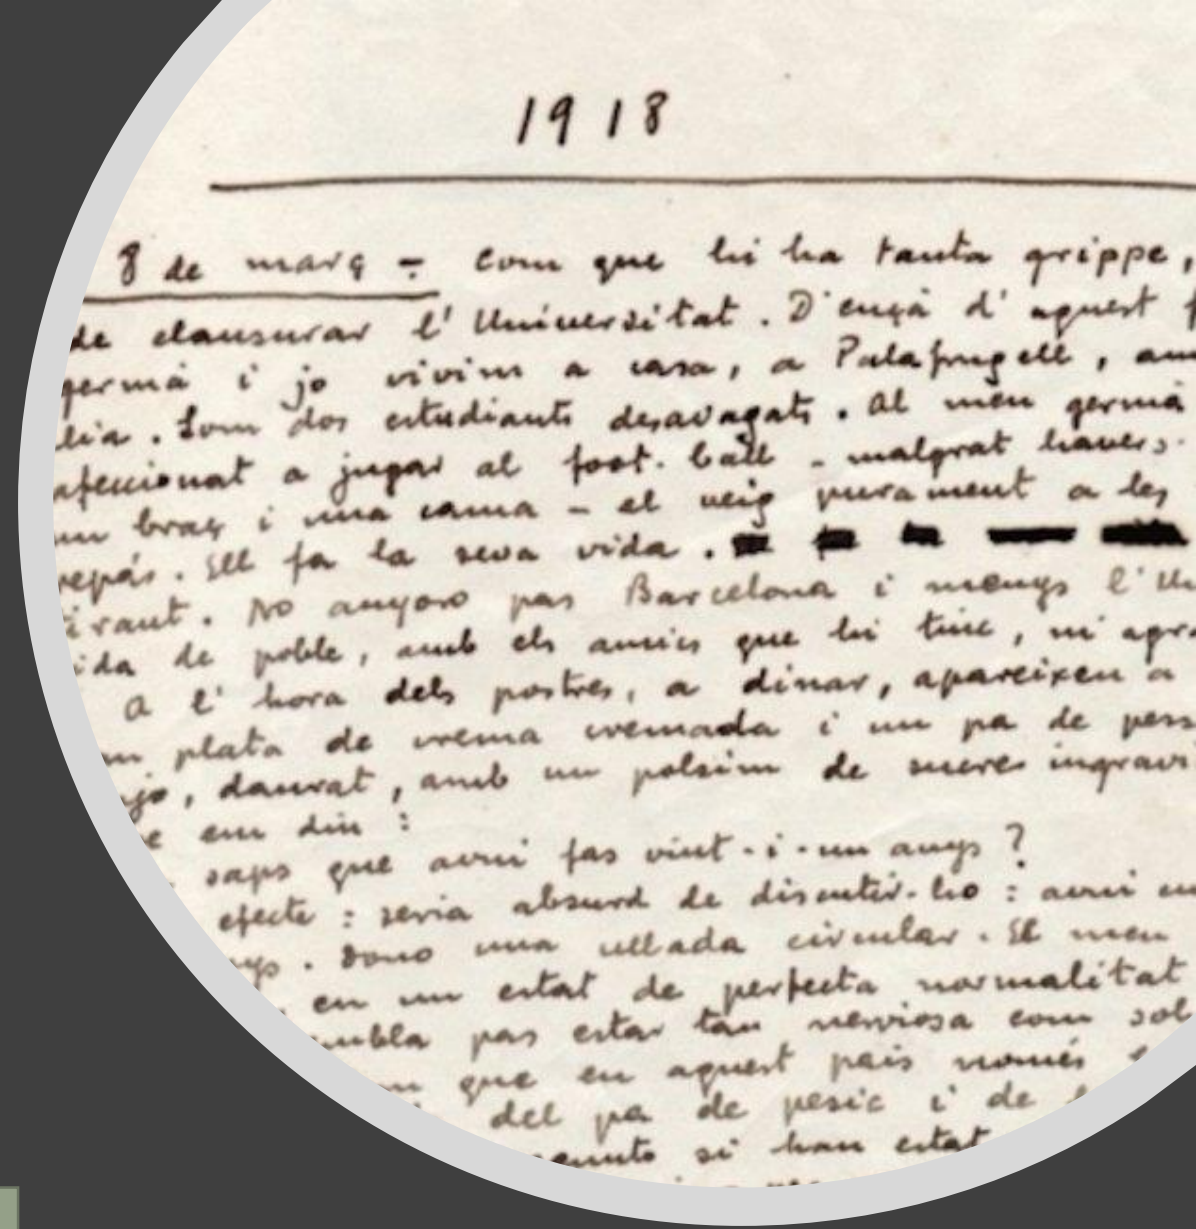 1918
8 de març - Com que hi ha tanta grippe,
de clausurar l'Universitat. D'ençà d'aquest
germà i jo vivim a casa, a Palafrugell, am
lia. Som dos estudiants desavagats. Al meu germà
afeccionat a jugar al foot-ball - malgrat havers-
un braç i una cama - el veig purament a les
repàs. Ell fa la seva vida.
tirant. No anyoro pas Barcelona i menys l'Un
ida de poble, amb els amics que hi tinc, m'agra
A l'hora dels postres, a dinar, apareixen a
plata de crema cremada i un pa de pess
njo, daurat, amb un polsim de sucre ingravi
e em diu:
saps que avui fas vint-i-un anys?
efecte: seria absurd de discutir-ho: avui
nys. Dono una ullada circular. El meu
en un estat de perfecta normalitat
mbla pas estar tan nerviosa com sol
que en aquest país només
del pa de pesic i de
si han estat